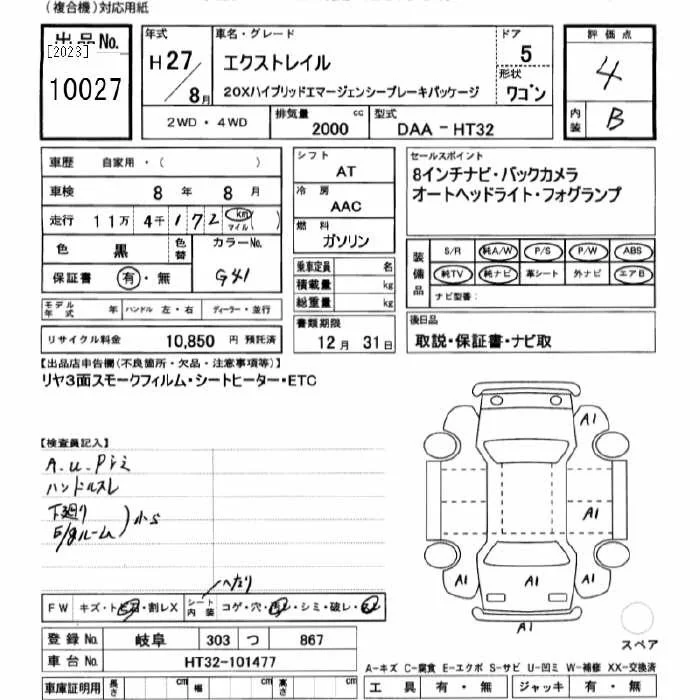 (複合機)対応用紙
出品No.
[2023]
10027
年式
H27/8月
車名・グレード
エクストレイル
20Xハイブリッドエマージェンシーブレーキパッケージ
ドア
5
形状
ワゴン
評価点
4
内装
B
2WD・4WD
排気量
2000 cc
型式
DAA-HT32
車歴 自家用・( )
車検 8年 8月
走行 11万 4千 172 km マイル ( )
色 黒
色替
カラーNo.
G41
保証書 有・無
モデル年式 年 ハンドル 左・右 ディーラー・並行
リサイクル料金 10,850 円 預託済
シフト
AT
冷房
AAC
燃料
ガソリン
乗車定員 名
積載量 kg
総重量 kg
書類期限
12月 31日
セールスポイント
8インチナビ・バックカメラ
オートヘッドライト・フォグランプ
装備品
S/R 純A/W P/S P/W ABS
純TV 純ナビ 革シート 外ナビ エアB
ナビ型番:
後日品
取説・保証書・ナビ取
【出品店申告欄(不良箇所・欠品・注意事項等)】
リヤ3面スモークフィルム・シートヒーター・ETC
【検査員記入】
A.u.Pキミ
ハンドルスレ
下廻り
E/gルーム
小S
へたり
FW キズ・トビ石・割レX
シート内装 コゲ・穴・汚レ・シミ・破レ・
A1
A1
A1
A1
A1
スペア
登録No. 岐阜 303 つ 867
車台No. HT32-101477
車庫証明用 長さ cm 幅 cm 高さ cm
A-キズ C-腐食 E-エクボ S-サビ U-凹ミ W-補修 XX-交換済
工具 有・無 ジャッキ 有・無